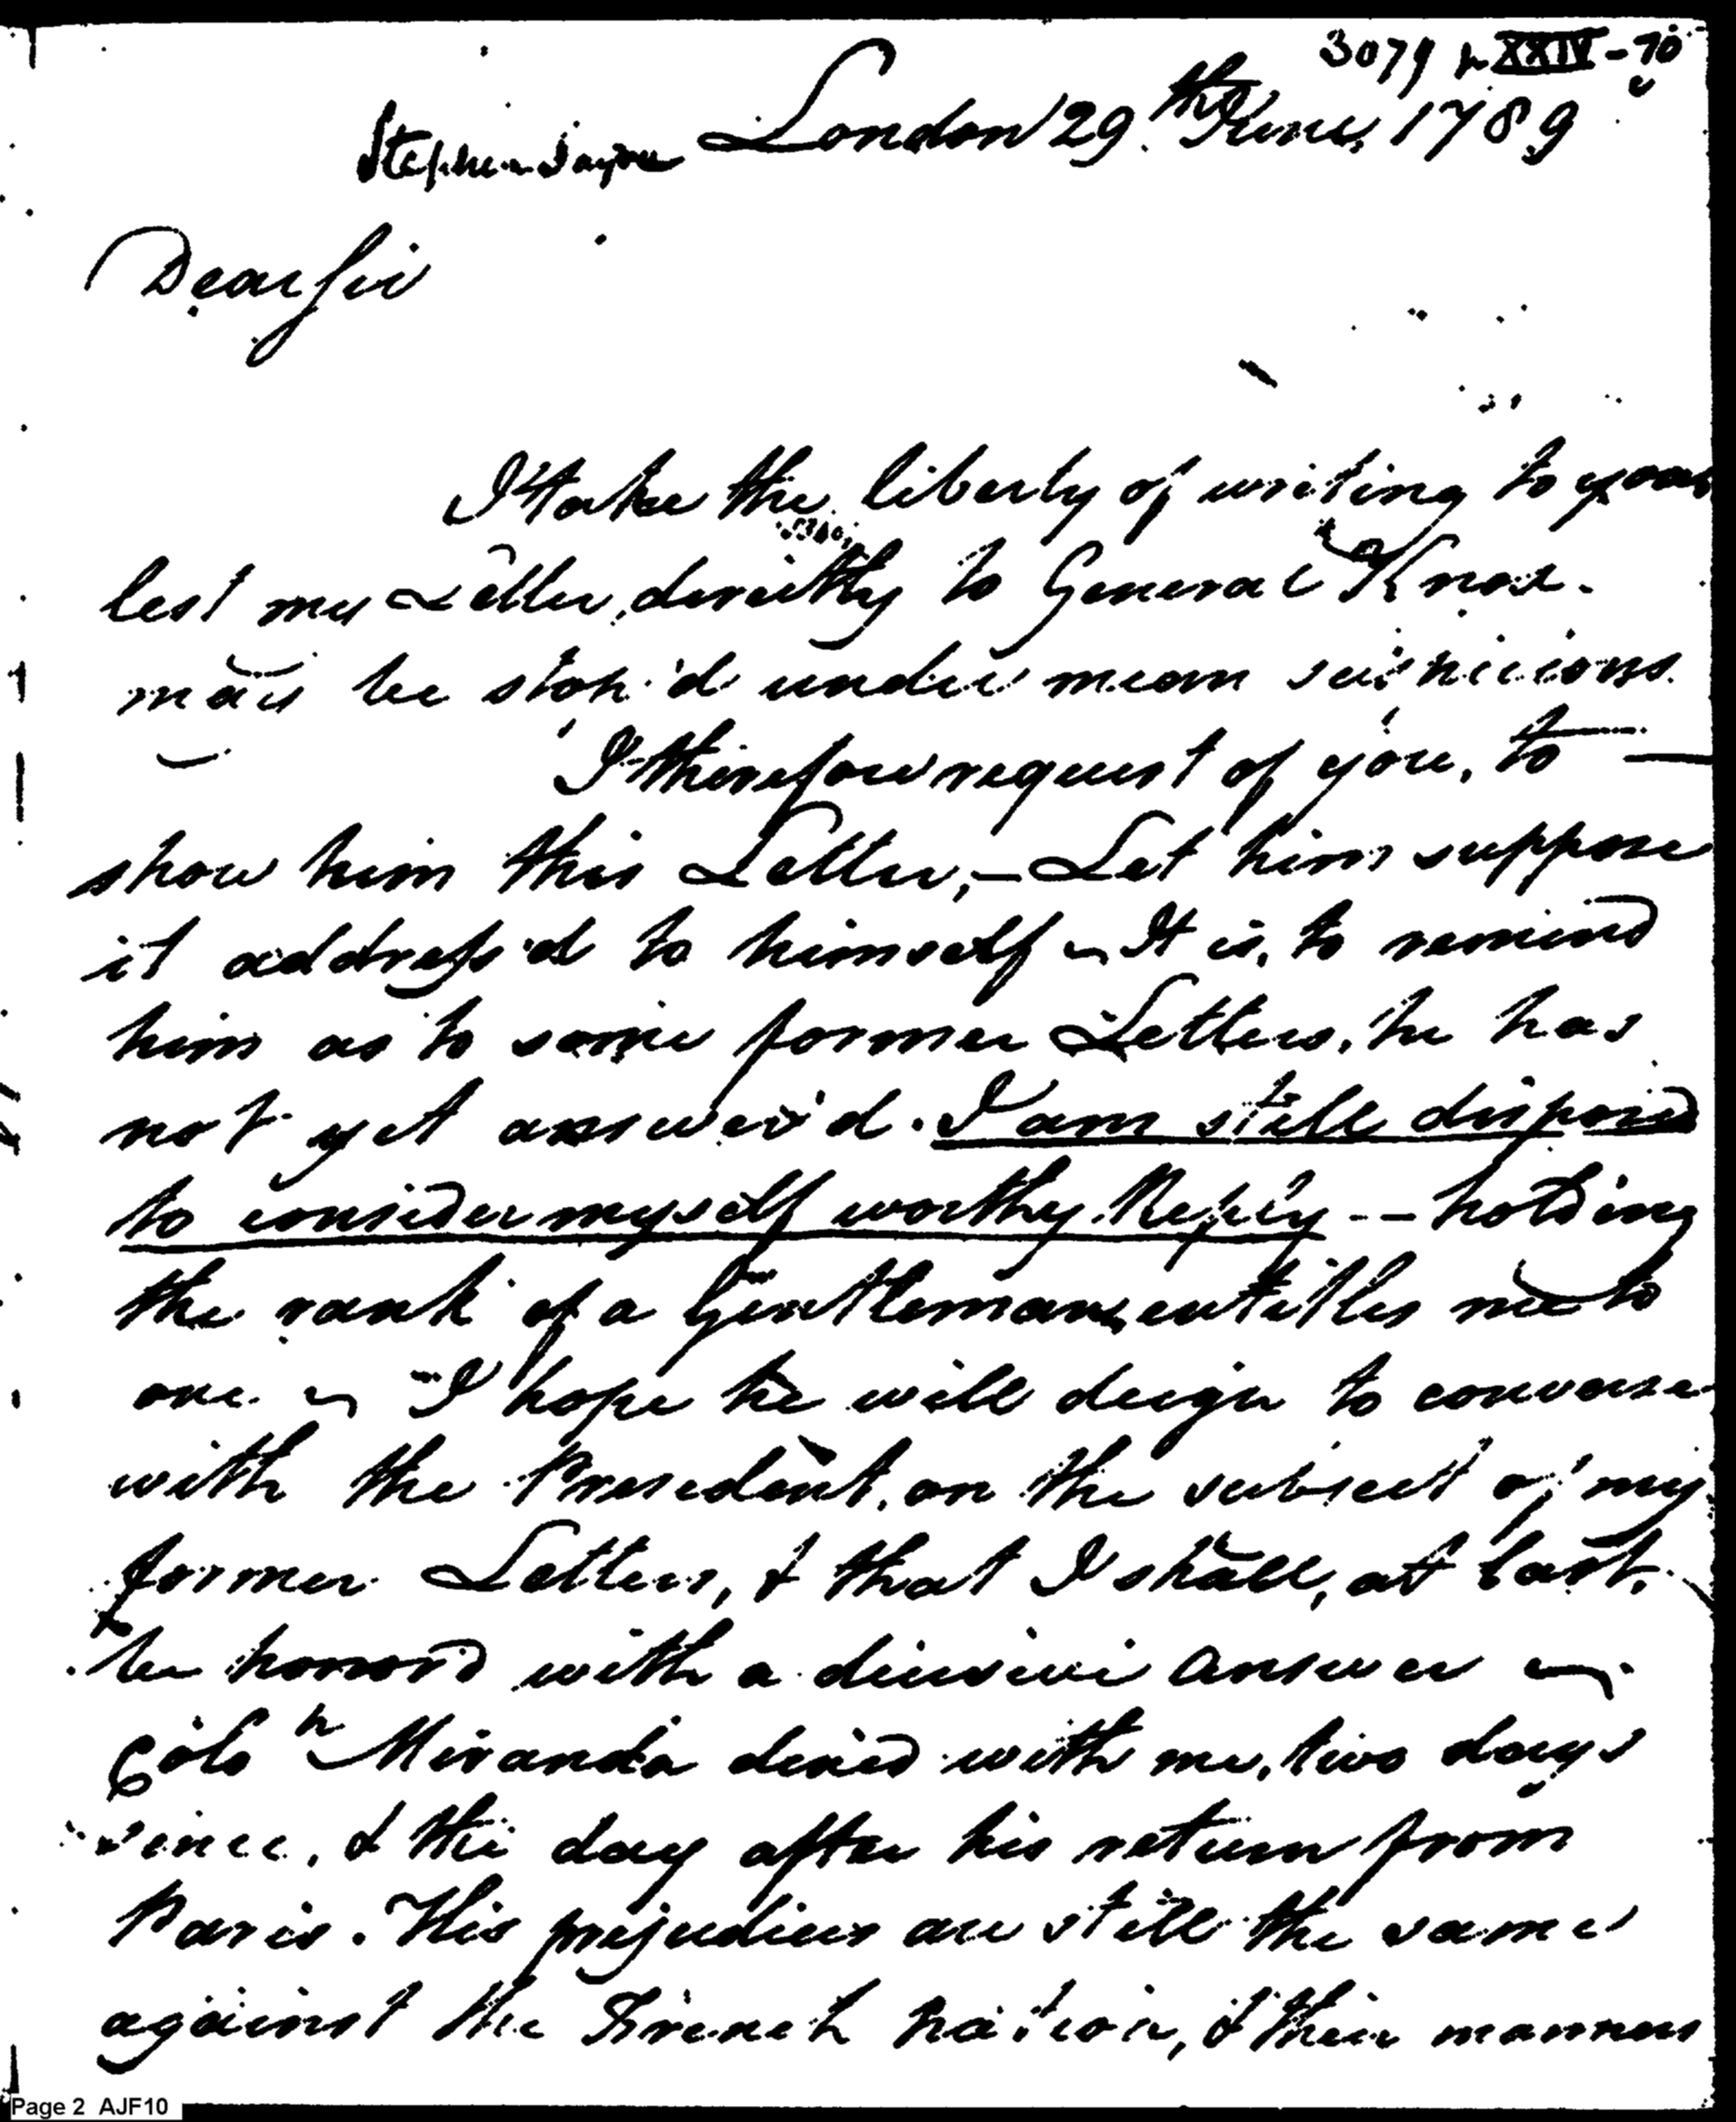 3079 XXIV-70
Stephen Sayre London 29.th June, 1789
Dear Sir
I take the liberty of writing to you
lest my Letter, directly to General Knox.
may be stop'd under mean suspicions.
I therefore request of you, to —
show him this Letter, — Let him suppose
it address'd to himself ~ It is, to remind
him as to some former Letters, he has
not yet answer'd. I am still dispos'd
to consider myself worthy Reply -- holding
the rank of a Gentleman, entitles me to
one ~ I hope he will deign to converse
with the President, on the subject of my
former Letters, & that I shall, at last,
be honord with a decisive answer ~
Colo Miranda dined with me, two days
since, & the day after his return from
Paris. His prejudices are still the same
against the French nation, & their manners
Page 2 AJF10